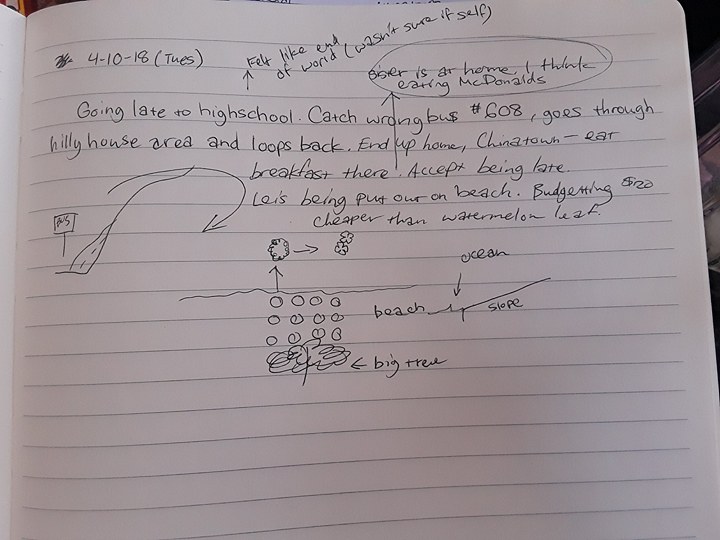 4-10-18 (Tues)
Felt like end
of world (wasn't sure if self)
Sister is at home, I think
eating McDonalds
Going late to highschool. Catch wrong bus #608, goes through
hilly house area and loops back. End up home, Chinatown - eat
breakfast there. Accept being late.
Leis being put out on beach. Budgetting $20
cheaper than watermelon leaf.
BUS
ocean
beach
slope
big tree